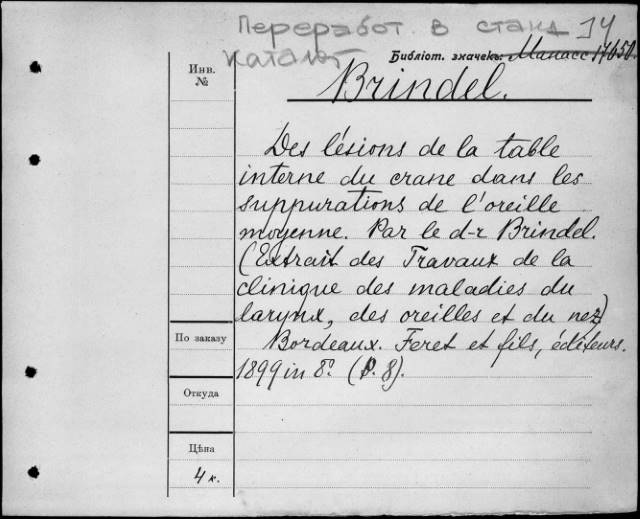 Переработ. в станд 14
каталог
Библіот. значекъ: Манасс 17650.
Инв.
№
Brindel.
Des lésions de la table
interne du crane dans les
suppurations de l'oreille
moyenne. Par le d-r Brindel.
(Extrait des Travaux de la
clinique des maladies du
larynx, des oreilles et du nez)
Bordeaux. Feret et fils, éditeurs.
1899 in 8º. (P. 8).
По заказу
Откуда
Цѣна
4 к.